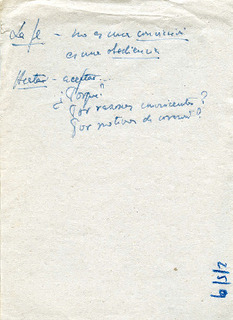 La fe - no es una convicción
es una obediencia
aceptar...
¿Porqué?
Por razones convincentes?
Por motivos de
6/5/2